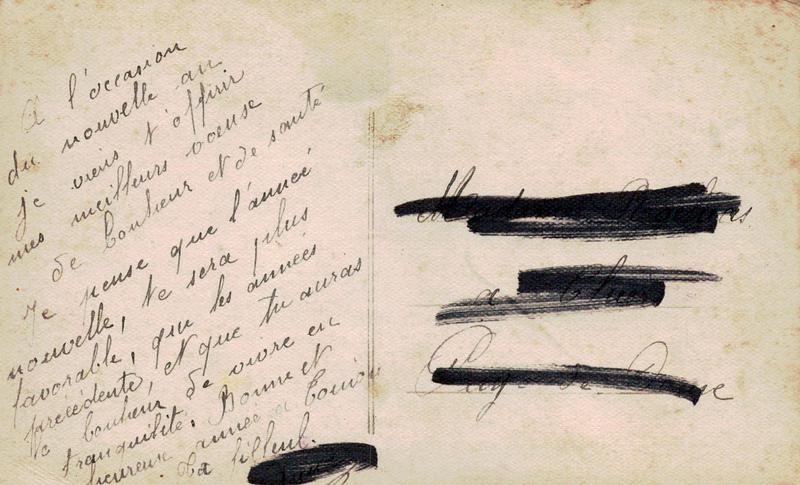 A l'occasion
du nouvelle an
je viens t'offrir
mes meilleurs voeuse
de bonheur et de santé
Je pense que l'anneé
nouvelle, te sera plus
favorable, que les années
précédente, et que tu auras
le bonheur de vivre en
tranquilité. Bonne et
heureuse année a
Ta filleul.
Madame
a
de